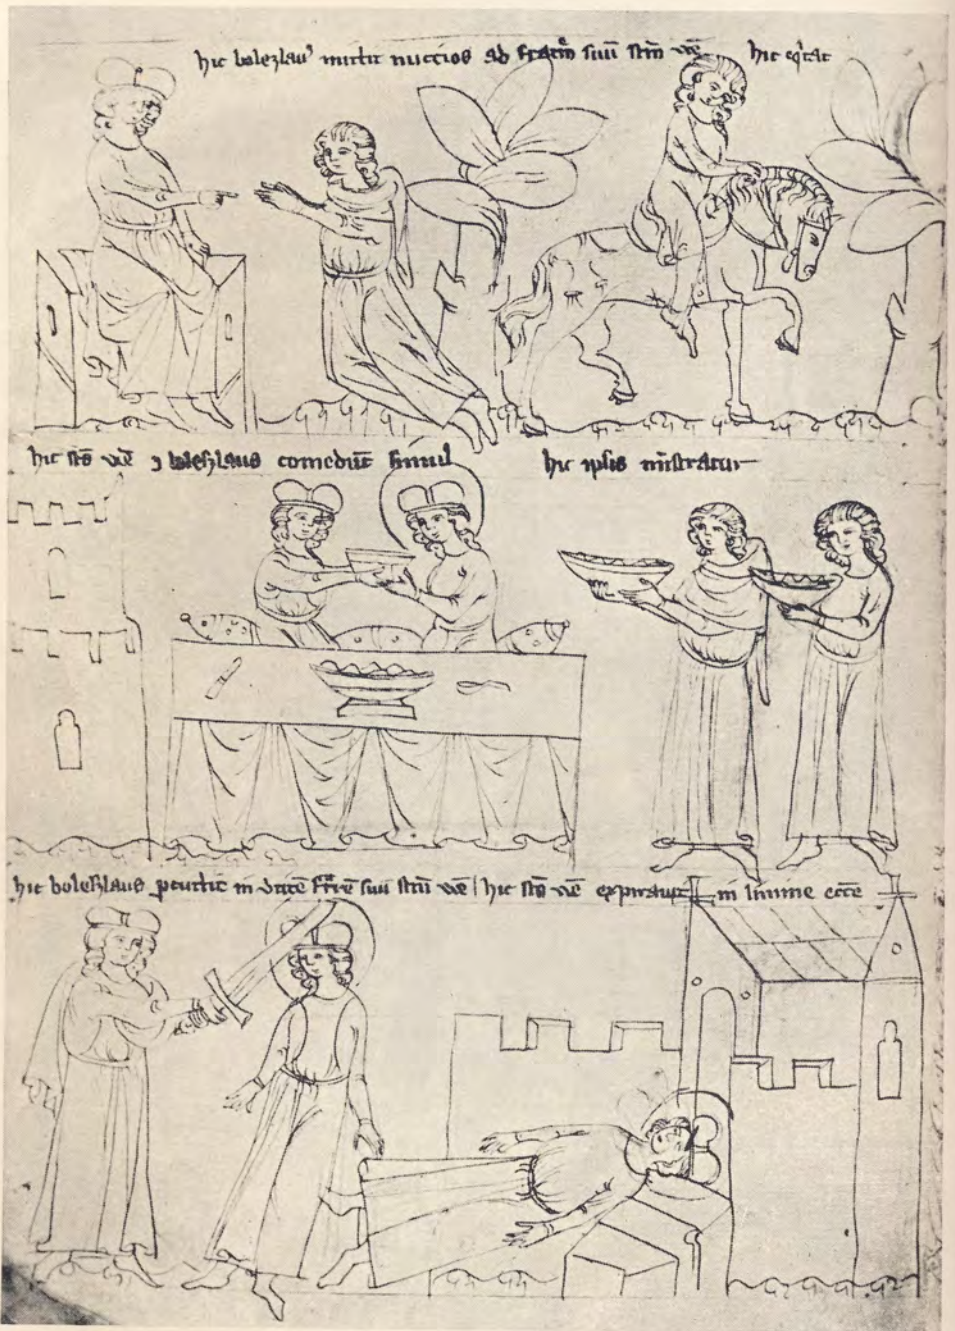 hic bolezlaus mittit nuccios ad fratrē suū stm̄ wē hic eq̄tat
hic stus̄ wē ⁊ bolesslaus comedūt simul hic ipsis mistratur
hic bolesslaus percutit in v̄tice frēm suū stū wē | hic stus̄ wē expirauit in limine eccē